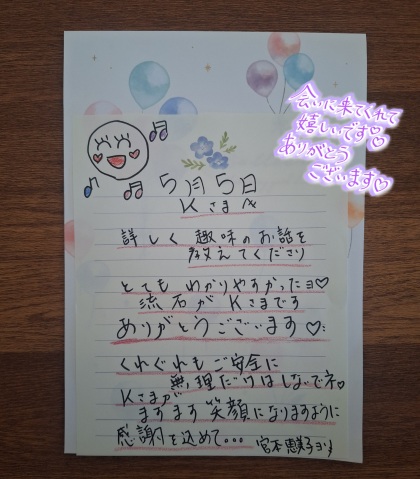 会いに来てくれて
嬉しいです♡
ありがとう
ございます♡
5月5日
Kさまへ
詳しく趣味のお話を
教えてくださり
とてもわかりやすかったョ♡
流石がKさまです
ありがとうございます♡
くれぐれもご安全に
無理だけはしないでネ♡
Kさまが
ますます笑顔になりますように
感謝を込めて…
宮本恵美子ョリ